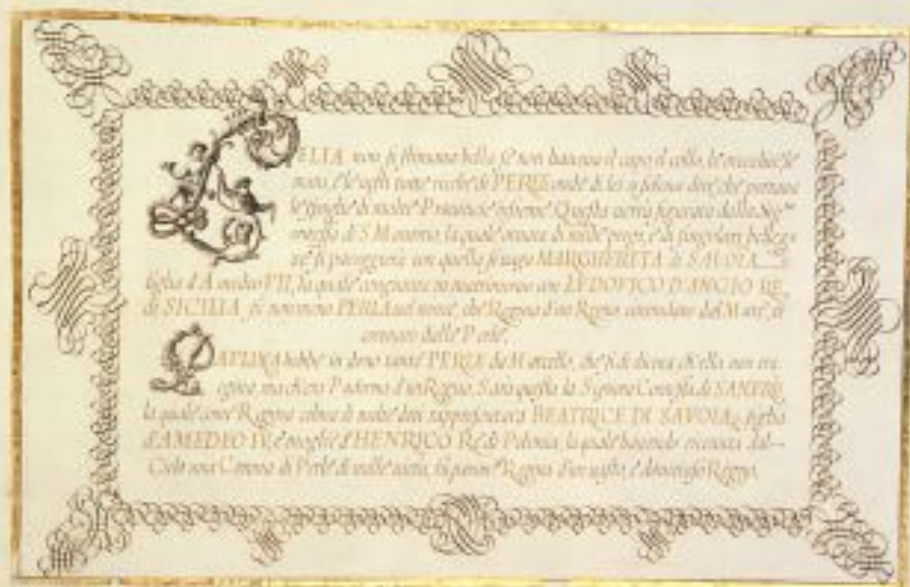 LELIA non si stimaua bella se non haueua il capo il collo, le orecchie, le
mani, e le uesti tutte ricche di PERLE onde di lei si soleua dire, che portaua
le spoglie di molte Prouincie insieme. Questa uerrà figurata dalla Sig.ra
di S. Mauritio, la quale ornata di mille pregi, e di singolari bellez-
ze si pareggierà con quella MARGHERITA di SAVOIA
figlia d'Amedeo VII, la quale congiunta in matrimonio con LVDOVICO D'ANGIO RE,
di SICILIA fù non meno PERLA nel nome, che Regina d'un Regno circondato dal Mare, et
ornato dalle Perle.
PAVLINA hebbe in dono tante PERLE da Marcello, che si diceua ch'ella non era
Regina, ma di un Regno. Sarà questa la Signora Contessa di
la quale come Regina colma di mille doti rappresenterà BEATRICE DI SAVOIA, figlia
d'AMEDEO IV, e moglie d'HENRICO Rè di Polonia, la quale hauendo riceuuta dal
Cielo una Corona di Perle di mille uirtù, fù Regina d'un uasto, e Regno.